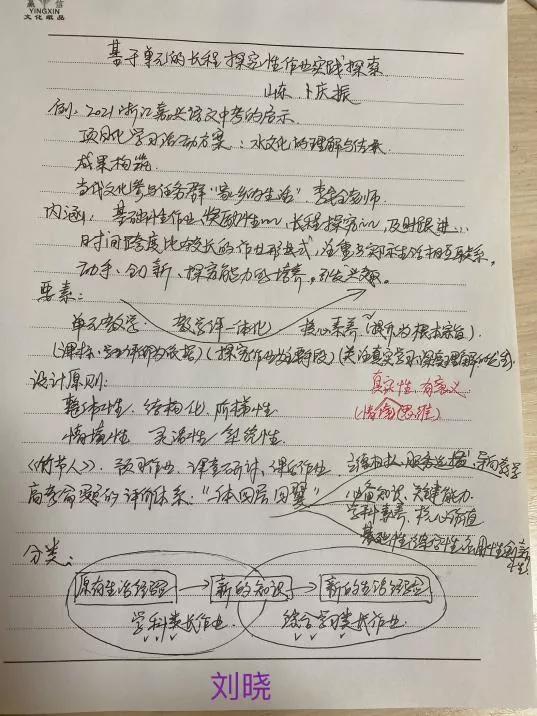 赢信
YINGXIN
文化纸品
基于单元的长程探究性作业实践探索
山东 卜庆振
例：2021浙江嘉兴语文中考的启示
项目化学习活动方案：水文化的理解与传承
成果构筑
当代文化参与任务群"家乡的生活" 老师
内涵：基础性作业、 长程探究 及时跟进…
时间跨度比较长的作业形式，注重与实际生活相互联系，
动手、创新、探究能力的培养，
要素：
单元教学： 教学评一体化 核心素养（提升为根本宗旨）
（课标、学业评价为依据）（探究作业为主要手段）（关注真实学习深度理解的
设计原则：
真实性、有意义
（情境 思维）
整体性、结构化、阶梯性
情境性 灵活性 系统性
《竹节人》：预习作业、课堂研讨、课后作业
立德树人、服务选拔、导向教学
高考命题的评价体系："一体四层四翼"
必备知识、关键能力
学科素养、核心价值
基础性 综合性 应用性 创新性
分类：
原有生活经验 → 新的知识 → 新的生活经验
学科类长作业 综合学习类长作业
刘晓